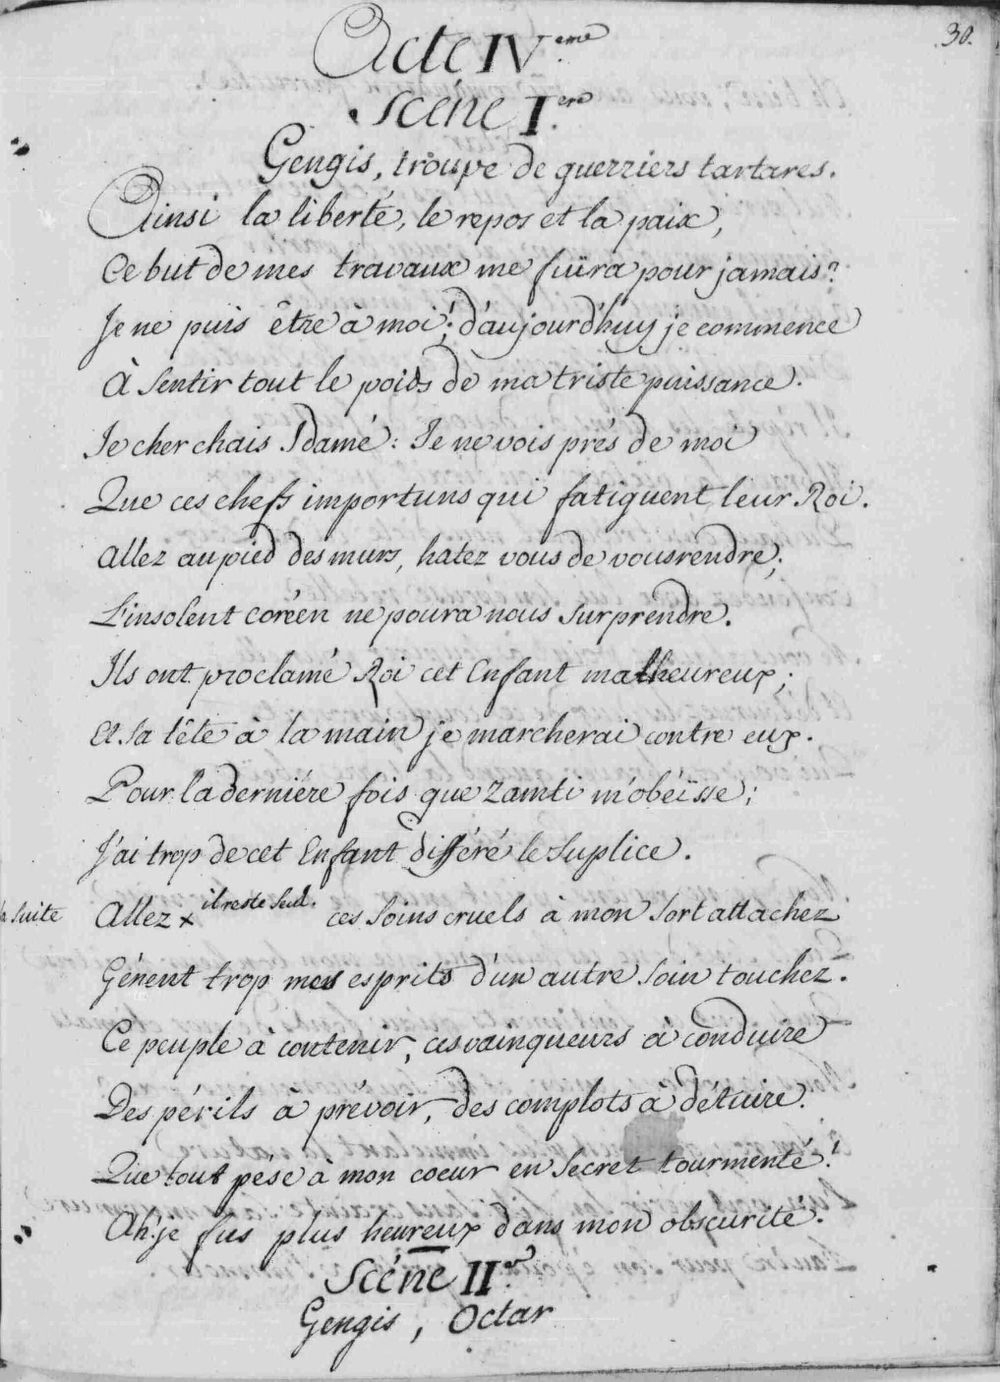 30.
Acte IV.eme
Scéne I.ere
Gengis, troupe de guerriers tartares.
Ainsi la liberté, le repos et la paix,
Ce but de mes travaux me fuïra pour jamais?
Je ne puis être à moi! d'aujourd'huy je commence
à sentir tout le poids de ma triste puissance.
Je cherchais Idamé: Je ne vois prés de moi
Que ces chefs importuns qui fatiguent leur Roi.
allez au pied des murs, hatez vous de vous rendre;
L'insolent coréen ne poura nous surprendre.
Ils ont proclamé Roi cet Enfant malheureux;
Et sa tête à la main je marcherai contre eux.
Pour la derniére fois que Zamti m'obéïsse;
J'ai trop de cet Enfant différé le suplice.
la suite Allez x il reste seul. ces soins cruels à mon sort attachez
Génent trop mes esprits d'un autre soin touchez.
Ce peuple à contenir, ces vainqueurs à conduire
Des périls à prévoir, des complots à détuire.
Que tout pése à mon coeur en secret tourmenté!
Ah! je fus plus heureux dans mon obscurité.
Scéne II.e
Gengis, Octar